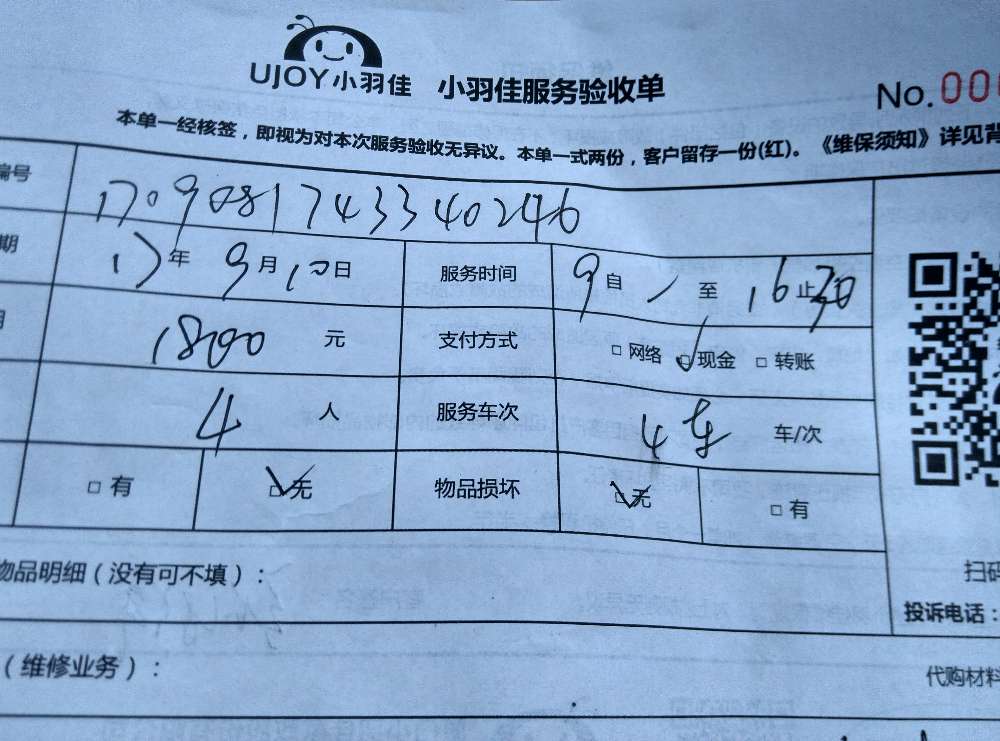 UJOY小羽佳 小羽佳服务验收单 No.000
本单一经核签，即视为对本次服务验收无异议。本单一式两份，客户留存一份(红)。《维保须知》详见背
编号 1709081743340246
期 17年 9月10日 服务时间 9自 至 16止30
1800 元 支付方式 □网络 ☑现金 □转账
4 人 服务车次 4车 车/次
□有 ☑无 物品损坏 ☑无 □有
物品明细（没有可不填）： 扫码
投诉电话：
（维修业务）： 代购材料